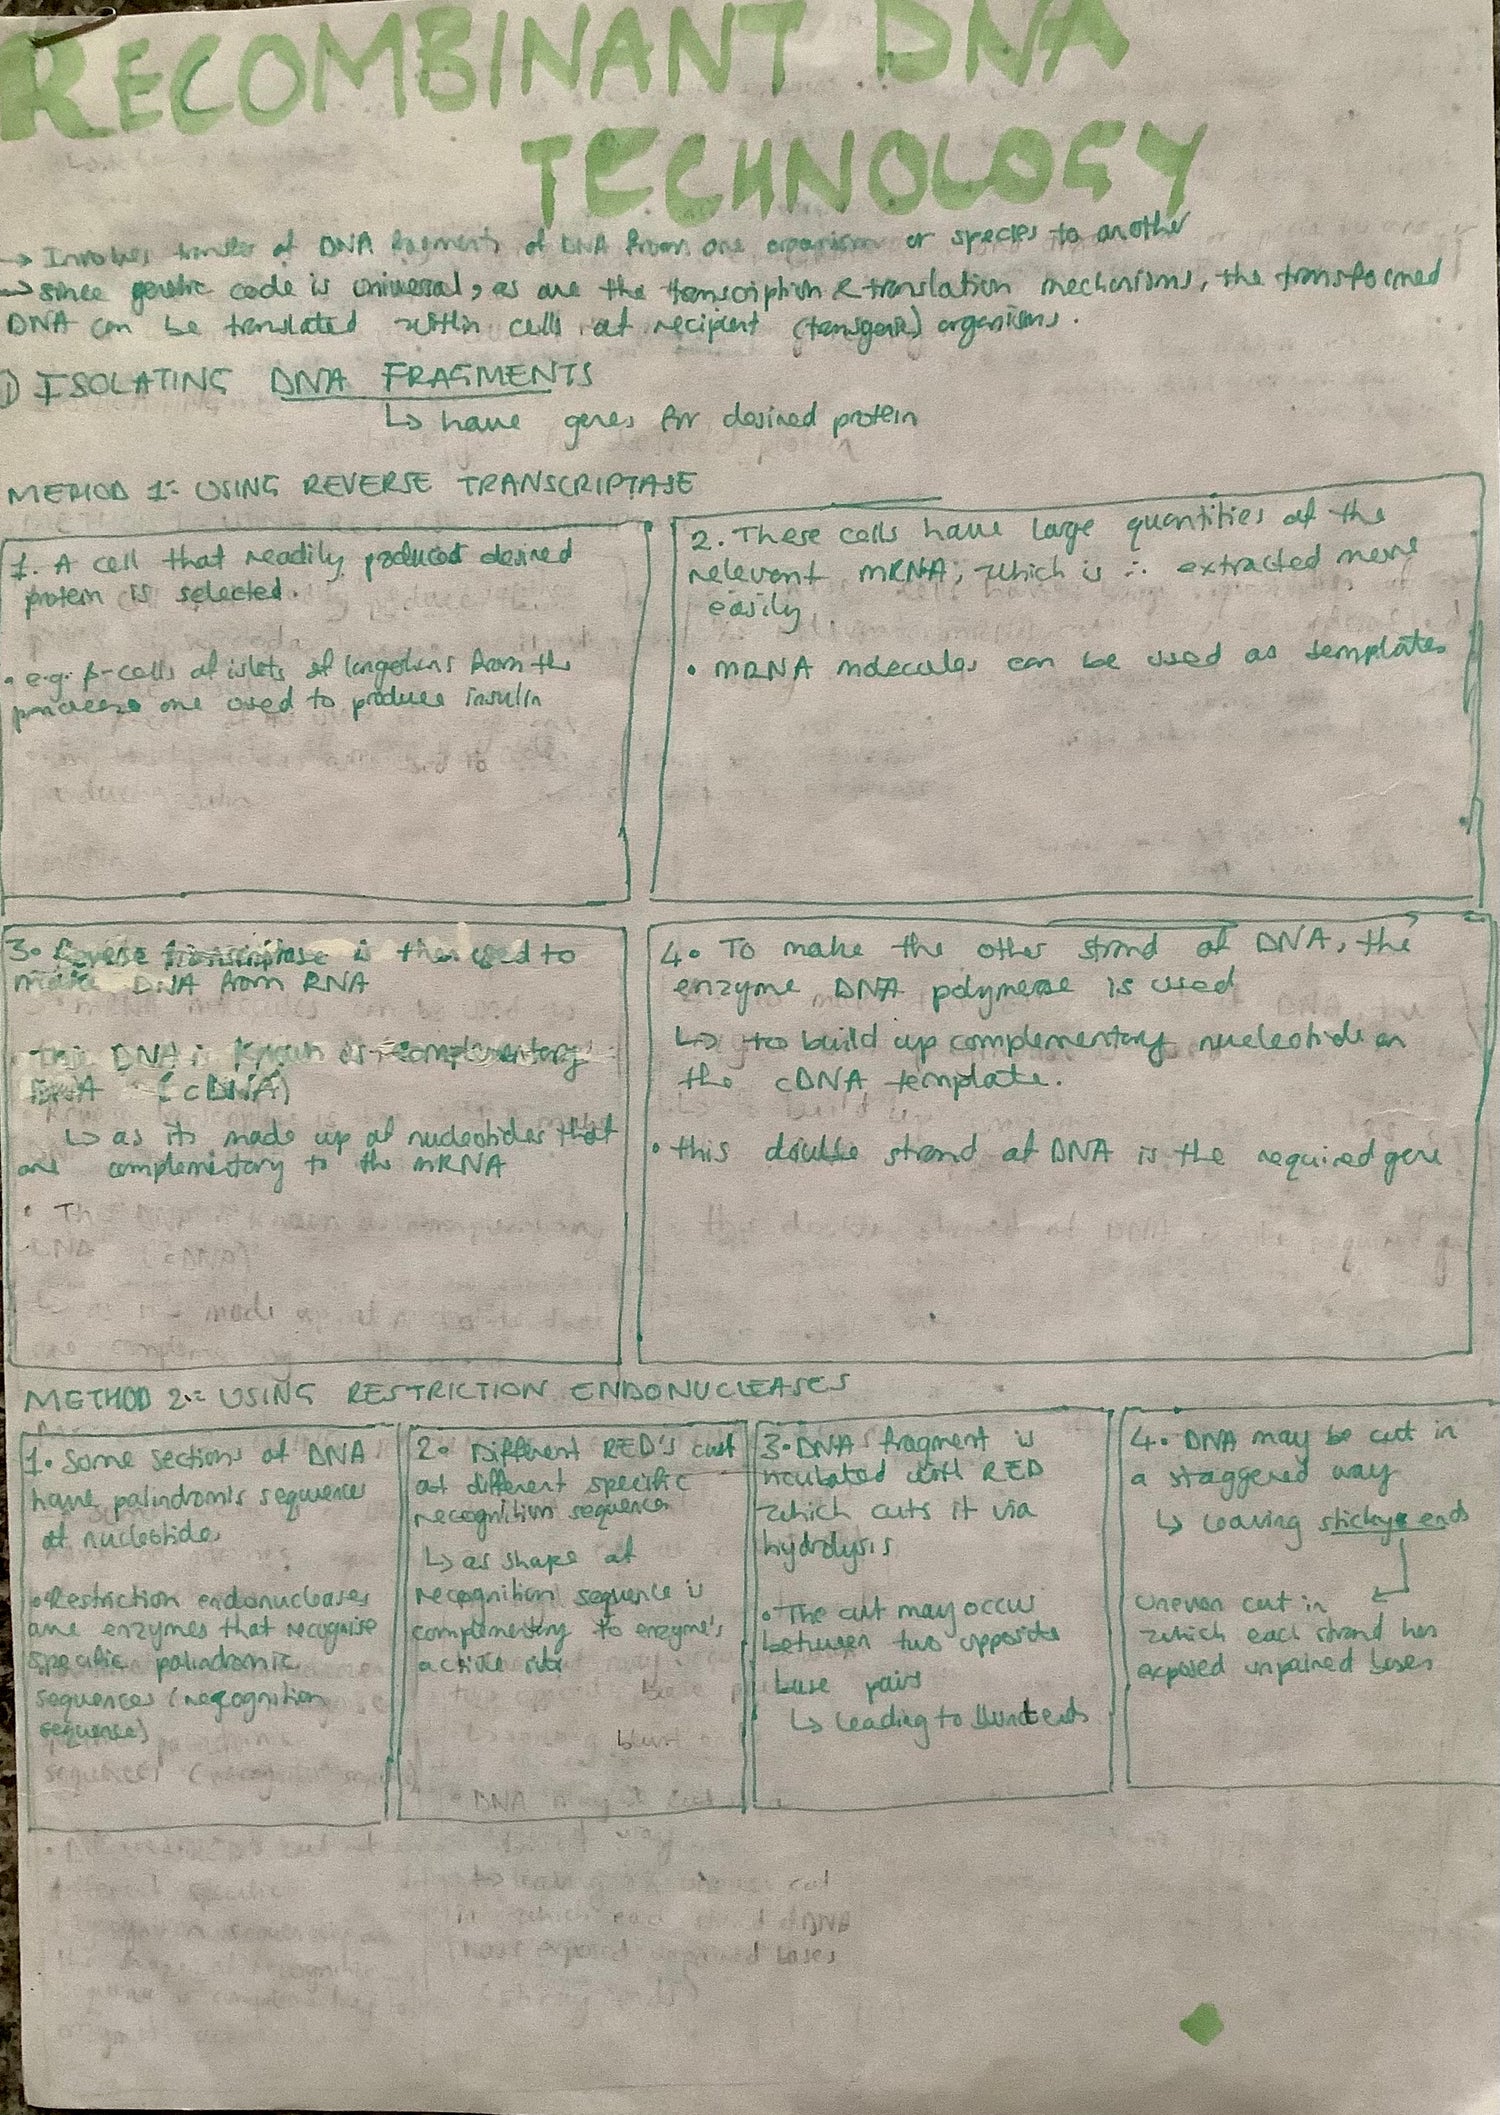 RECOMBINANT DNA
TECHNOLOGY
→ Involves transfer of DNA fragments of DNA from one organism or species to another
→ since genetic code is universal, as are the transcription & translation mechanisms, the transformed
DNA can be translated within cells of recipient (transgenic) organisms.
① ISOLATING DNA FRAGMENTS
↳ have genes for desired protein
METHOD 1:- USING REVERSE TRANSCRIPTASE
1. A cell that readily produced desired
protein is selected.
• e.g. β-cells of islets of langerhans from the
pancreas are used to produce insulin
2. These cells have large quantities of the
relevent mRNA, which is ∴ extracted more
easily
• mRNA molecules can be used as templates
3. Reverse transcriptase is then used to
make DNA from RNA
• this DNA is known as complementary
DNA (cDNA)
↳ as its made up of nucleotides that
are complementary to the mRNA
4. To make the other strand of DNA, the
enzyme DNA polymerase is used
↳ to build up complementary nucleotide on
the cDNA template.
• this double strand of DNA is the required gene
METHOD 2:- USING RESTRICTION ENDONUCLEASES
1. Some sections of DNA
have palindromis sequences
of nucleotides
• Restriction endonucleases
are enzymes that recognise
specific palindromic
sequences (recognition
sequence)
2. Different RED's cut
at different specific
recognition sequences
↳ as shape of
recognition sequence is
complementary to enzyme's
active site
3. DNA fragment is
incubated with RED
which cuts it via
hydrolysis
• The cut may occur
between two opposite
base pairs
↳ leading to blunt ends
4. DNA may be cut in
a staggered way
↳ leaving sticky ends
Uneven cut in
which each strand has
exposed unpaired bases